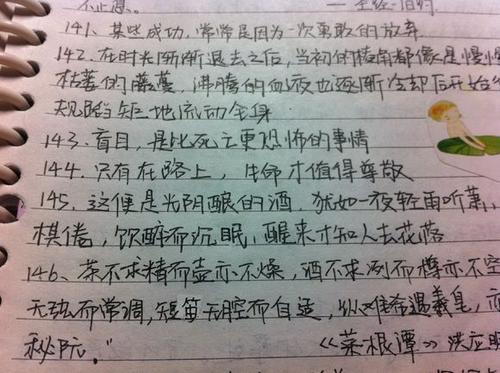 不止息。 ——圣经·旧约
141、某些成功，常常是因为一次勇敢的放弃
142、在时光渐渐退去之后，当初的棱角都像是慢慢
枯萎的藤蔓，沸腾的血液也逐渐冷却后开始
规规矩矩地流动全身
143、盲目，是比死亡更恐怖的事情
144、只有在路上，生命才值得尊敬
145、这便是光阴酿的酒，犹如一夜轻雨听萧，
棋倦，饮醉而沉眠，醒来才知人去花落
146、茶不求精而壶亦不燥，酒不求冽而樽亦不空
无弦而常调，短笛无腔而自适，纵难希遇羲皇，亦
秘阮。" 《菜根谭》洪应明